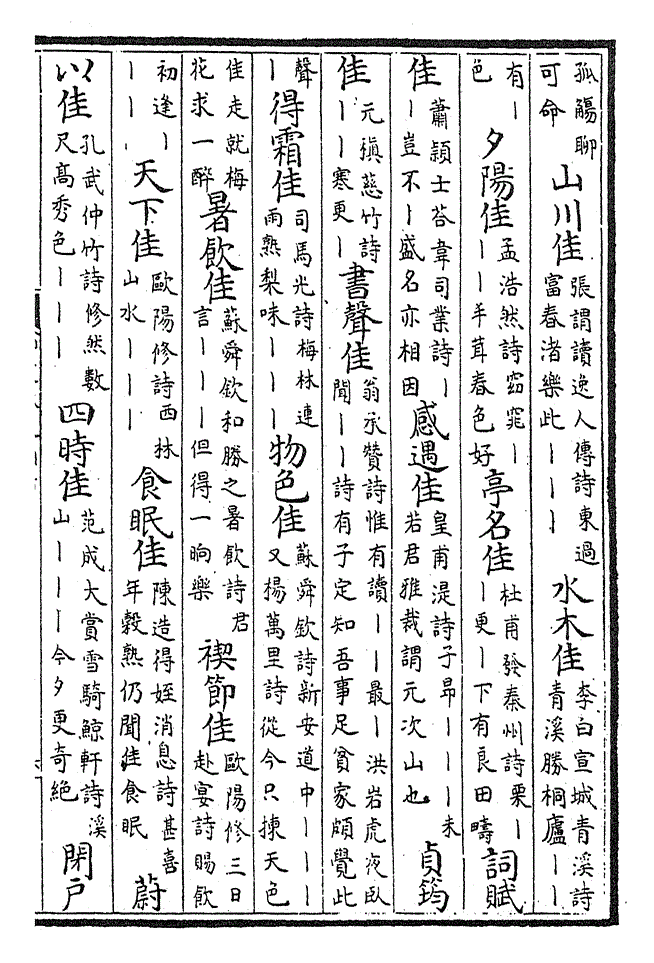 孤觴聊可命 山川佳 張謂讀逸人傳詩東過富春渚樂此｜｜｜ 水木佳 李白宣城青溪詩青溪勝桐廬｜｜
有｜色 夕陽佳 孟浩然詩窈窕｜｜｜羊茸春色好 亭名佳 杜甫發秦州詩栗｜｜更｜下有良田疇 詞賦
佳 蕭穎士荅韋司業詩｜｜豈不｜盛名亦相因 感遇佳 皇甫湜詩子昂｜｜｜未若君雅裁謂元次山也 貞筠
佳 元稹慈竹詩｜｜寒更｜ 書聲佳 翁承贊詩惟有讀｜｜最｜洪岩虎夜臥聞｜｜詩有子定知吾事足貧家頗覺此
聲｜ 得霜佳 司馬光詩梅林連雨熟梨味｜｜｜ 物色佳 蘇舜欽詩新安道中｜｜｜又楊萬里詩從今只揀天色
佳走就梅花求一醉 暑飲佳 蘇舜欽和勝之暑飲詩君言｜｜｜但得一晌樂 禊節佳 歐陽修三日赴宴詩賜飲
初逢｜｜｜ 天下佳 歐陽修詩西林山水｜｜｜ 食眠佳 陳造得姪消息詩甚喜年穀熟仍聞佳食眠 蔚
以佳 孔武仲竹詩修然數尺高秀色｜｜｜ 四時佳 范成大賞雪騎鯨軒詩溪山｜｜｜今夕更奇絕 閉戶